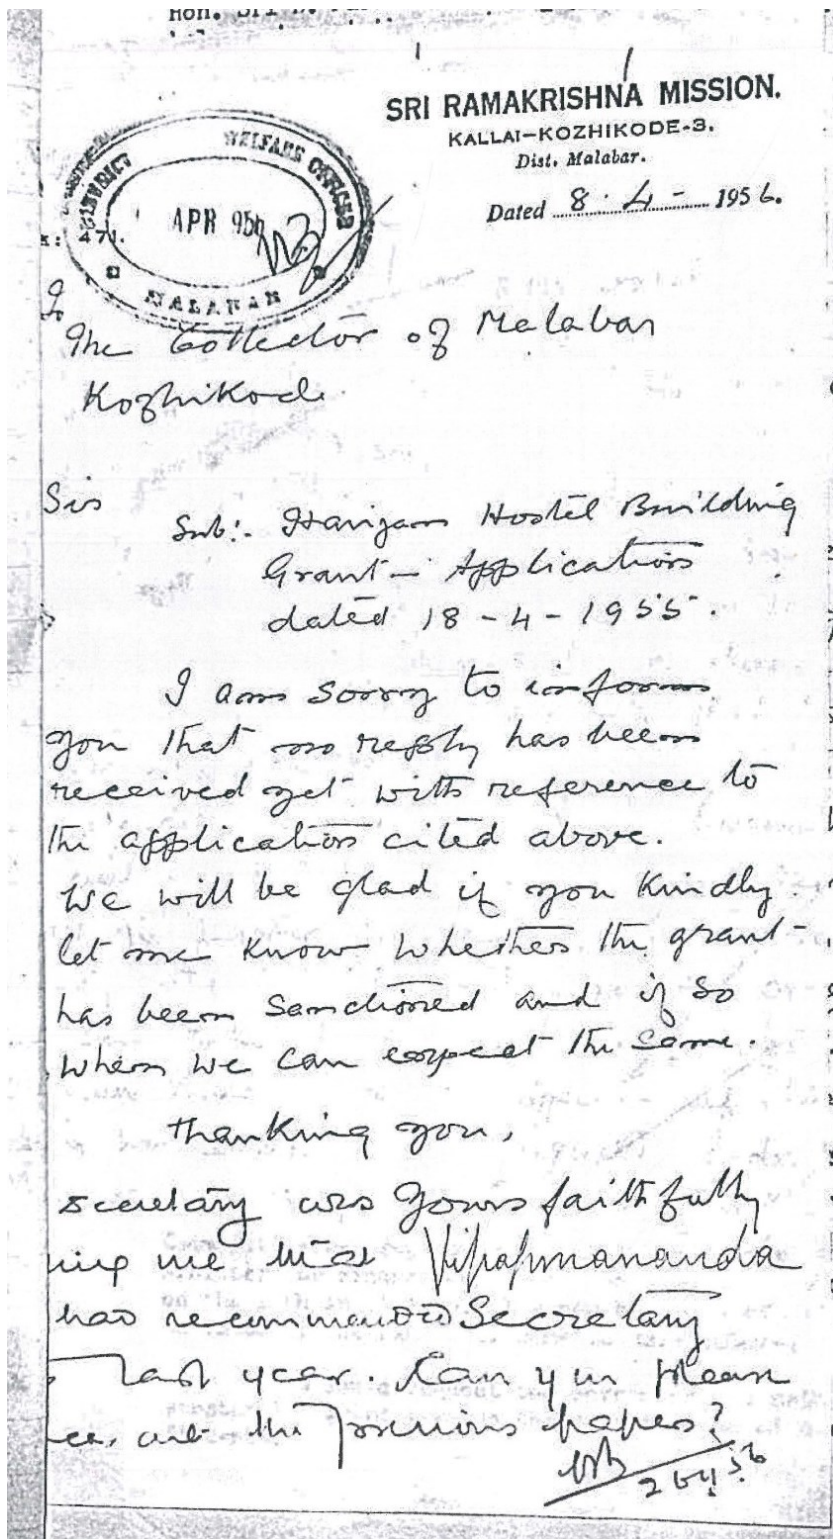 Hon. Sri
SRI RAMAKRISHNA MISSION.
KALLAI-KOZHIKODE-3.
Dist. Malabar.
Dated 8-4-1956.
DISTRICT WELFARE OFFICER
APR 956
MALABAR
To
The Collector of Malabar
Kozhikode
Sir
Sub:- Harijan Hostel Building
Grant - Application
dated 18-4-1955.
I am sorry to inform
you that no reply has been
received yet with reference to
the application cited above.
We will be glad if you kindly
let me know whether the grant
has been sanctioned and if so
when we can expect the same.
Thanking you,
Yours faithfully
Secretary
secretary was
me that
has recommended
last year. Can you please
out the previous papers?